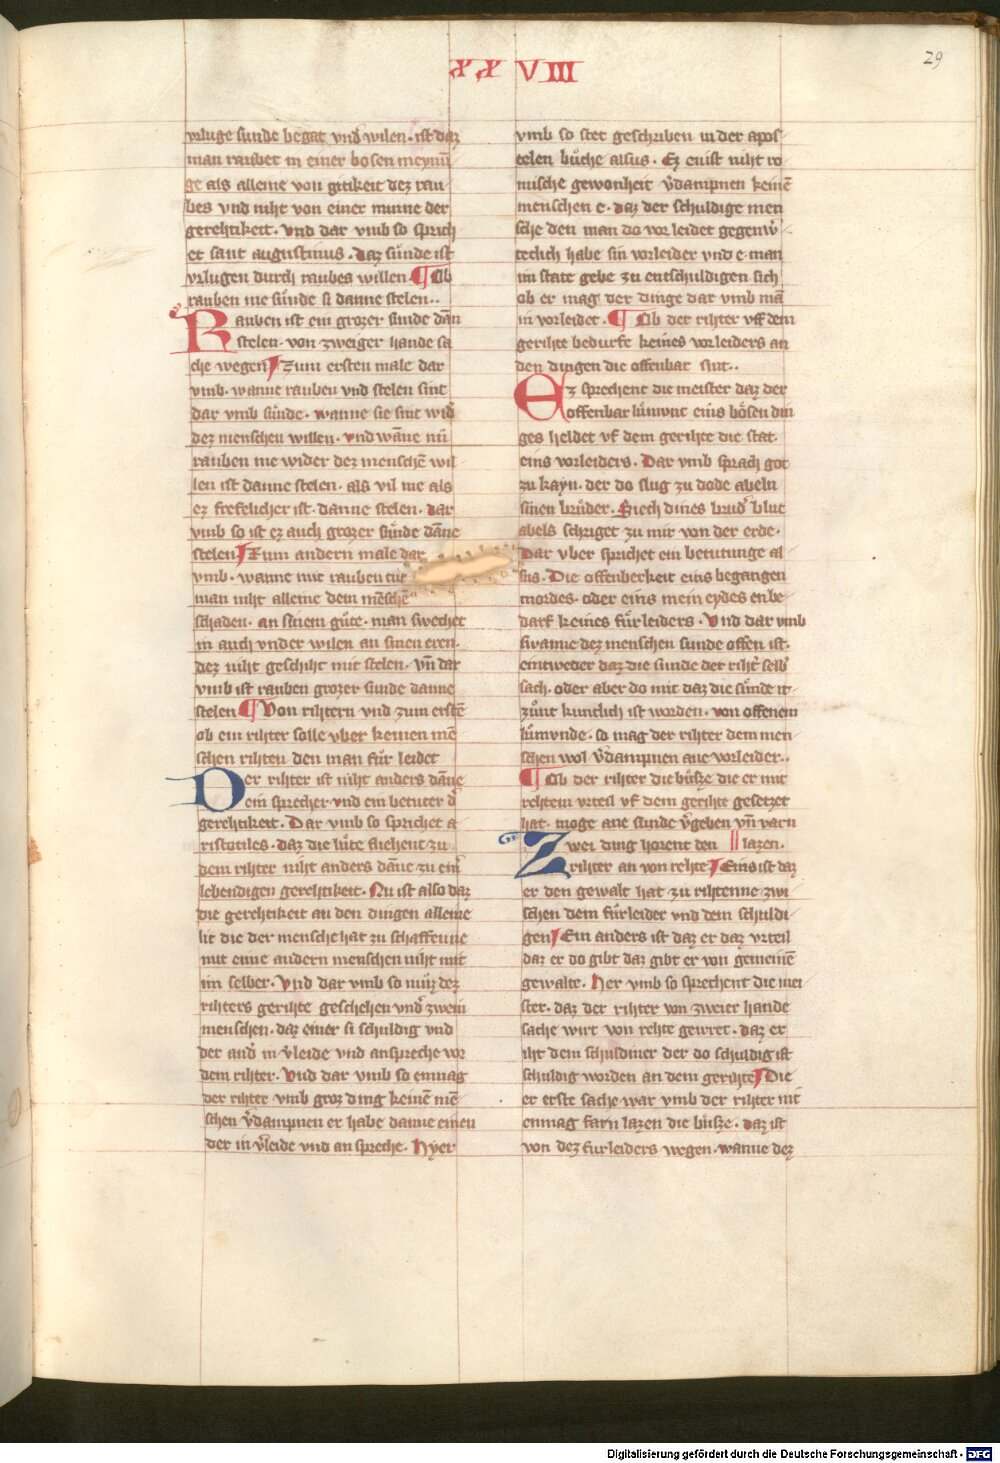 XX VIII
29
vrluge sunde begat vnd̾ wilen · ist daz
man raubet in einer bosen meynū
ge als alleine von gitikeit dez rau
bes vnd niht von einer minne der
gerehtikeit · vnd dar vmb so sprich
et sant augustinus · daz suͤnde ist
vrlugen durch raubes willen ¶ Ob
rauben me suͤnde si danne stelen ··
Rauben ist ein grozer sunde dāň
stelen · von zweiger hande sa
che wegen Zum ersten male dar
vmb · wanne rauben vnd stelen sint
dar vmb suͤnde · wanne sie sint wid̾
dez menschen willen · vnd wāne nū
rauben me wider dez menschē wil
len ist danne stelen · als vil me als
ez frefelicher ist · danne stelen · dar
vmb so ist ez auch grozer suͤnde dāne
stelen Zum andern male dar
vmb · wanne mit rauben tut
man niht alleine dem mēschē
schaden · an sinem guͤte · man swechet
in auch vnder wilen an sinen eren ·
dez niht geschiht mit stelen · vn̄ dar
vmb ist rauben grozer sunde danne
stelen ¶ Von rihtern vnd zum erstē
ob ein rihter solle vber keinen mē
schen rihten den man fuͤr leidet
Der rihter ist niht anders dāne
ein sprecher vnd ein betuter d̾
gerehtikeit · Dar vmb so sprichet a
ristotiles · daz die luͤte fliehent zu
dem rihter niht anders dāne zu eim̾
lebendigen gerehtikeit · Nu ist also daz
die gerehtikeit an den dingen alleine
lit die der mensche hat zu schaffenne
mit eime andern menschen niht mit
im selber · Vnd dar vmb so muͤz dez
rihters gerihte geschehen vnd̾ zwein
menschen · daz einer si schuldig vnd
der and̾ in v̾leide vnd anspreche vor
dem rihter · Vnd dar vmb so enmag
der rihter vmb groz ding keinē mē
schen v̾dampnen er habe danne einen
der in v̾leide vnd an spreche · Hyer
vmb so stet geschriben in der apos
telen buͤche alsus · Ez enist niht ro
mische gewonheit v̾dampnen keinē
menschen e · daz der schuldige men
sche den man do vor leidet gegenw̾
teclich habe sin vorleider vnd e man
im state gebe zu entschuldigen sich
ob er mag der dinge dar vmb mā
in vorleidet · ¶ Ob der rihter vff dem
gerihte bedurfe keines vorleiders an
den dingen die offenbar sint ··
Ez sprechent die meister daz der
offenbar luͤmunt eins boͤsen din
ges heldet vf dem gerihte die stat
eins vorleiders · Dar vmb sprach got
zu kayn · der do slug zu dode abeln
sinen bruͤder · Sich dines brud̾ blut
abels schriget zu mir von der erde ·
Dar vber sprichet ein betutunge al
sus · Die offenberkeit eins begangen
mordes · oder eins mein eydes enbe
darf keines fuͤrleiders · Vnd dar vmb
swanne dez menschen sunde offen ist ·
eintweder daz die sunde der riht̾ selb̾
sach · oder aber do mit daz die suͤnde it
zuͤnt kuntlich ist worden · von offenem
luͤmvnde · so mag der rihter dem men
schen wol v̾dampnen ane vorleider ··
¶ Ob der rihter die buͤsze die er mit
rehtem vrteil vf dem gerihte gesetzet
hat · moge ane sunde v̾geben vn̄ varn
Zwei ding horent den ‖ lazen ·
rihter an von rehte Eins ist daz
er den gewalt hat zu rihtenne zwi
schen dem fuͤrleider vnd dem schuldi
gen Ein anders ist daz er daz vrteil
daz er do gibt daz gibt er von gemeinē
gewalte · Her vmb so sprechent die mei
ster · daz der rihter von zweier hande
sache wirt von rehte geirret · daz er
iht dem schuldiner der do schuldig ist
schuldig worden an dem gerihte Die
er erste sache war vmb der rihter nit
enmag farn lazen die buͤsze · daz ist
von dez furleiders wegen · wanne dez
Digitalisierung gefördert durch die Deutsche Forschungsgemeinschaft - DFG